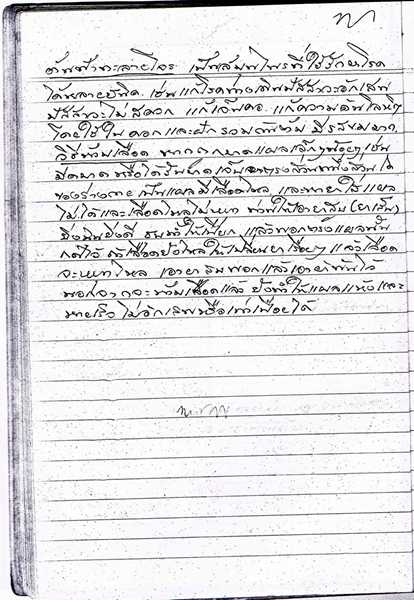 ต้นฟ้าทะลายโจร เป็นสมุนไพรที่ใช้รักษาโรค
ได้หลายชนิด เช่น แก้โรคทางเดินปัสสาวะอักเสบ
ปัสสาวะไม่สะดวก แก้เจ็บคอ แก้ความดันโลหิต
โดยใช้ใบ ดอก และฝัก รวมกัน มีรสขมมาก
วิธีห้ามเลือด หากถูกบาดแผลเล็กๆ น้อยๆ เช่น
มีดบาด หรือได้รับบาดเจ็บตรงส่วนหนึ่งส่วนใด
ของร่างกาย เป็นแผลมีเลือดไหล และหายใส่แผล
ไม่ได้และเลือดไหลไม่หยุด ท่านให้เอายาเส้น (ยาเส้น)
ยิ่งฉุนยิ่งดี ชุบน้ำให้เปียก แล้วพอกตรงแผลนั้น
กดไว้ ถ้าเลือดยังไหลให้เปลี่ยนยาเรื่อยๆ แล้วเลือด
จะหยุดไหล เอายาพอกแล้วเอาผ้าพันไว้
นอกจากจะห้ามเลือดแล้ว ยังทำให้แผลแห้งและ
หายเร็ว ไม่อักเสบหรือเน่าเปื่อยได้